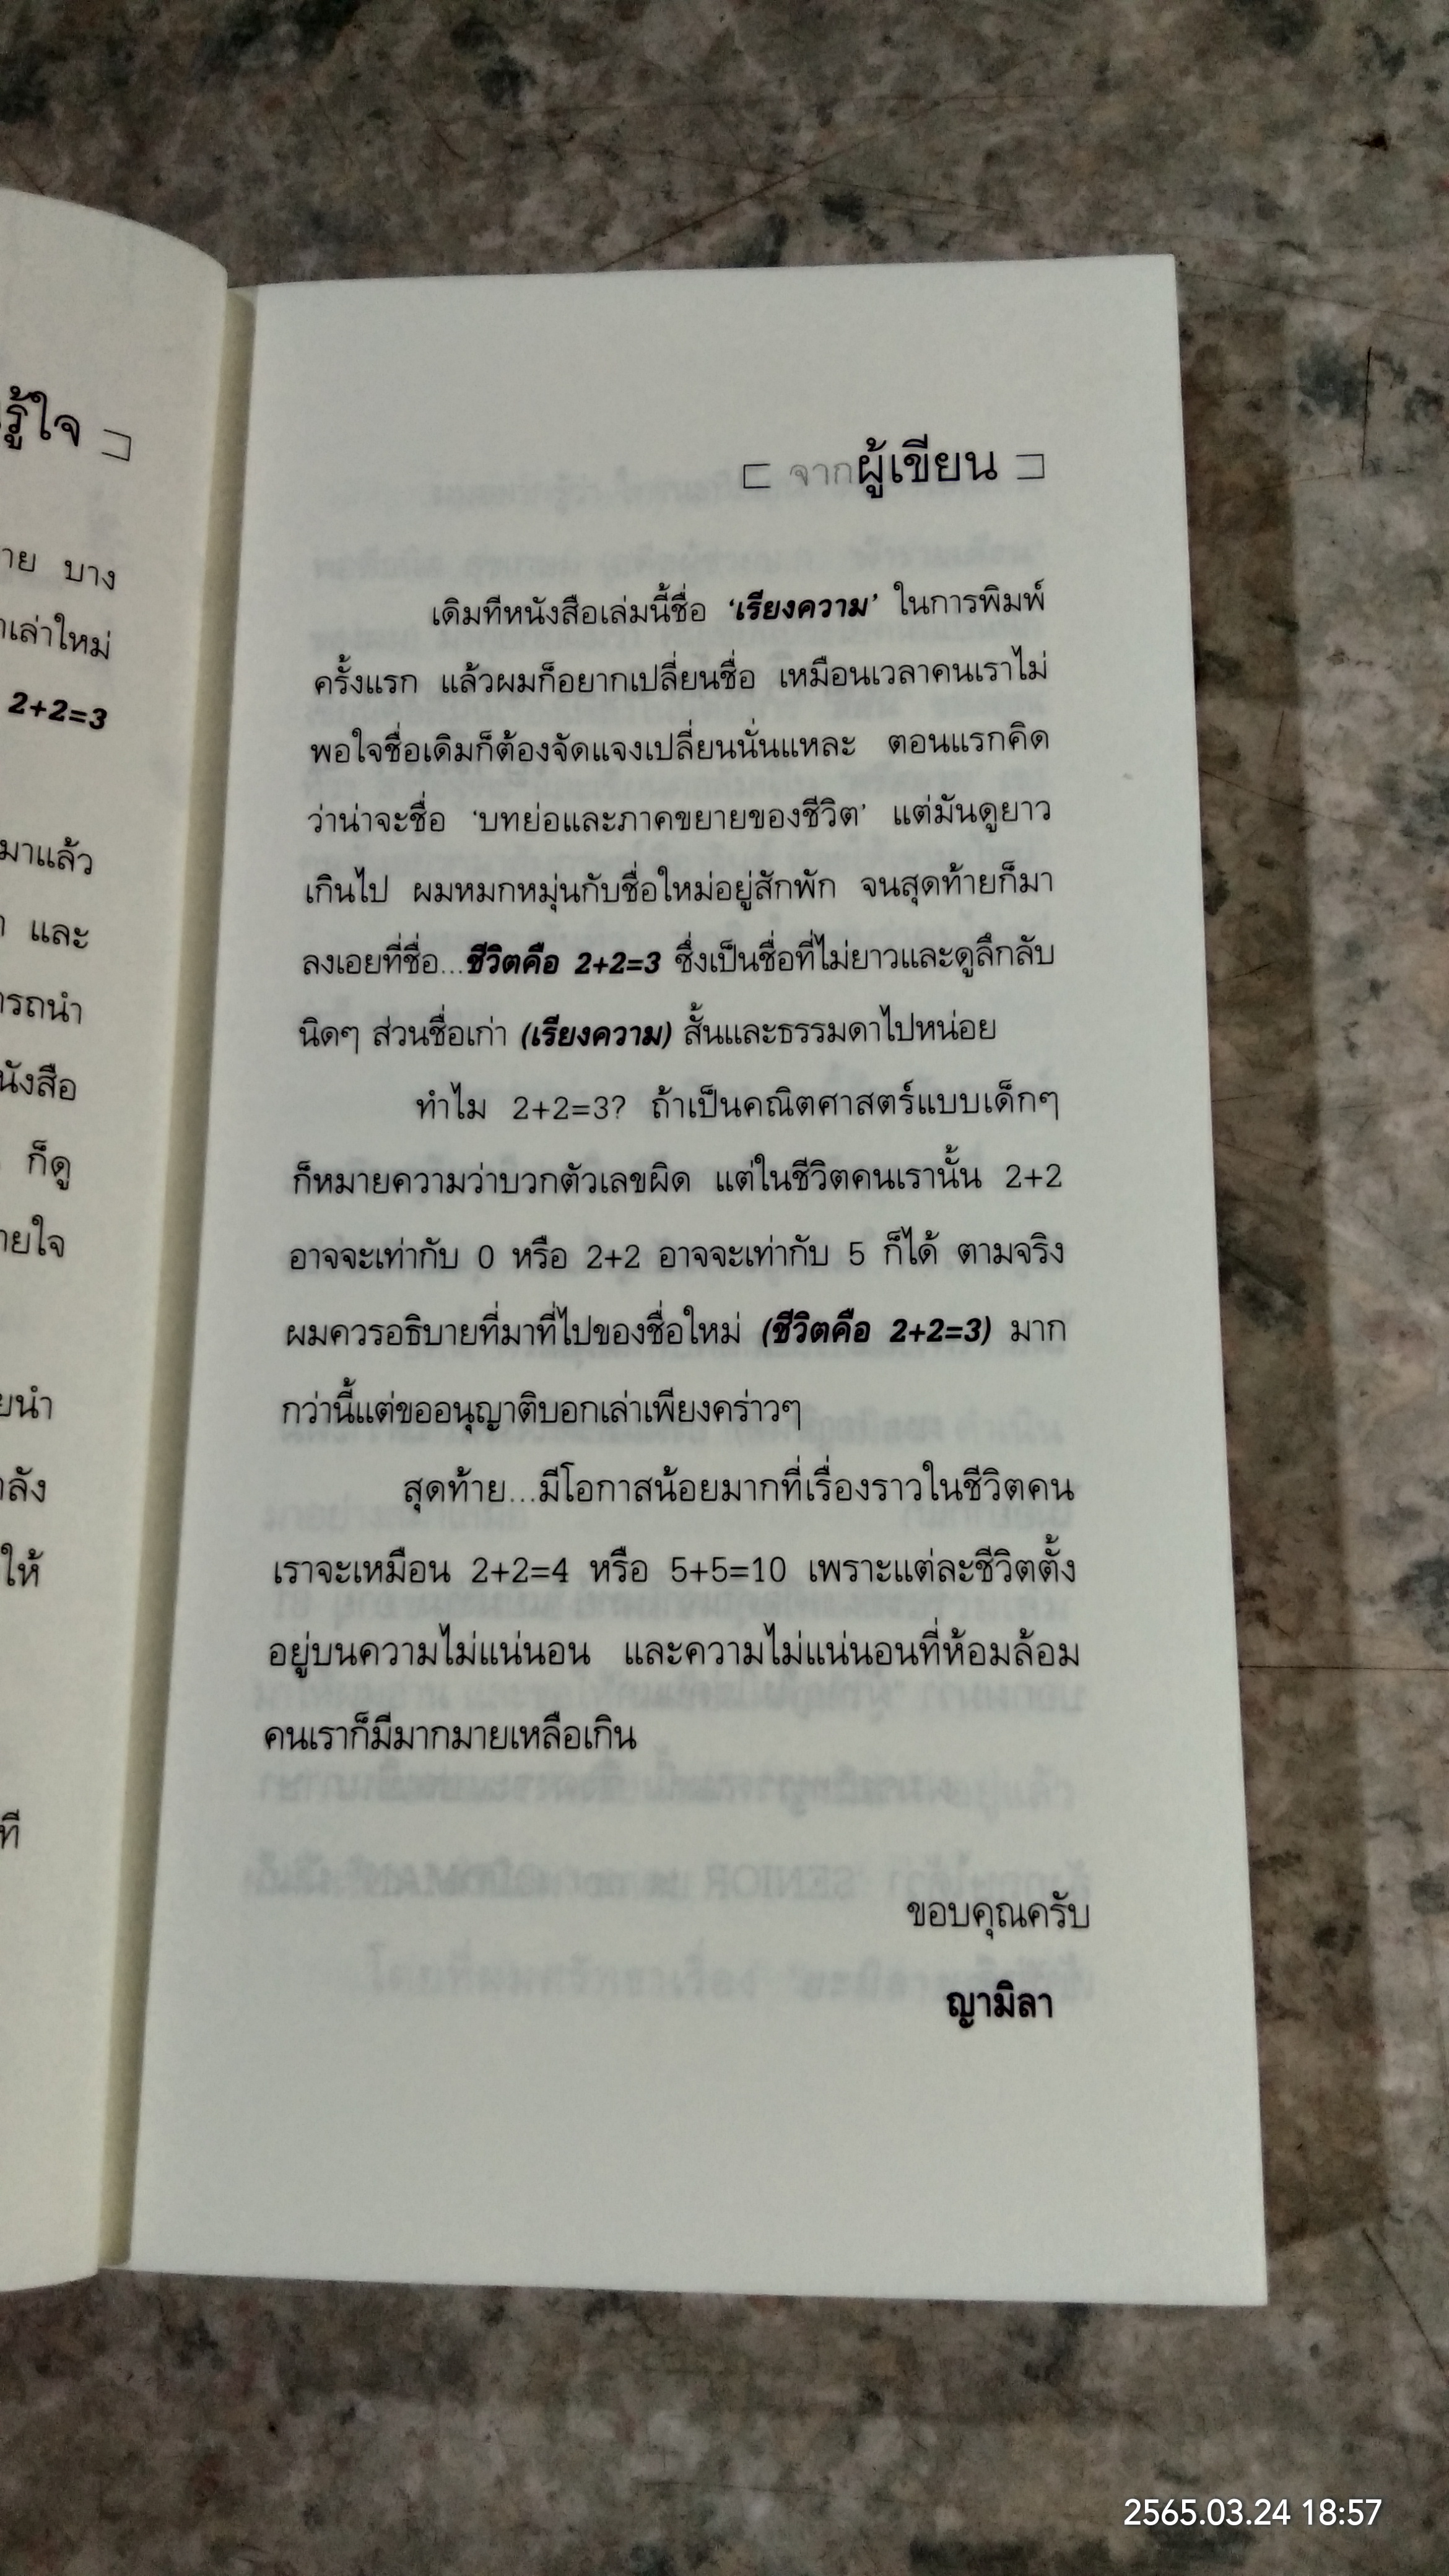 รู้ใจ
าย บาง
าเล่าใหม่
2+2=3
มาแล้ว
และ
ารถนำ
นังสือ
ก็ดู
ายใจ
ยนำ
าลัง
ให้
ที
จากผู้เขียน
เดิมทีหนังสือเล่มนี้ชื่อ ‘เรียงความ’ ในการพิมพ์
ครั้งแรก แล้วผมก็อยากเปลี่ยนชื่อ เหมือนเวลาคนเราไม่
พอใจชื่อเดิมก็ต้องจัดแจงเปลี่ยนนั่นแหละ ตอนแรกคิด
ว่าน่าจะชื่อ ‘บทย่อและภาคขยายของชีวิต’ แต่มันดูยาว
เกินไป ผมหมกหมุ่นกับชื่อใหม่อยู่สักพัก จนสุดท้ายก็มา
ลงเอยที่ชื่อ...ชีวิตคือ 2+2=3 ซึ่งเป็นชื่อที่ไม่ยาวและดูลึกลับ
นิดๆ ส่วนชื่อเก่า (เรียงความ) สั้นและธรรมดาไปหน่อย
ทำไม 2+2=3? ถ้าเป็นคณิตศาสตร์แบบเด็กๆ
ก็หมายความว่าบวกตัวเลขผิด แต่ในชีวิตคนเรานั้น 2+2
อาจจะเท่ากับ 0 หรือ 2+2 อาจจะเท่ากับ 5 ก็ได้ ตามจริง
ผมควรอธิบายที่มาที่ไปของชื่อใหม่ (ชีวิตคือ 2+2=3) มาก
กว่านี้แต่ขออนุญาติบอกเล่าเพียงคร่าวๆ
สุดท้าย...มีโอกาสน้อยมากที่เรื่องราวในชีวิตคน
เราจะเหมือน 2+2=4 หรือ 5+5=10 เพราะแต่ละชีวิตตั้ง
อยู่บนความไม่แน่นอน และความไม่แน่นอนที่ห้อมล้อม
คนเราก็มีมากมายเหลือเกิน
ขอบคุณครับ
ญามิลา
2565.03.24 18:57